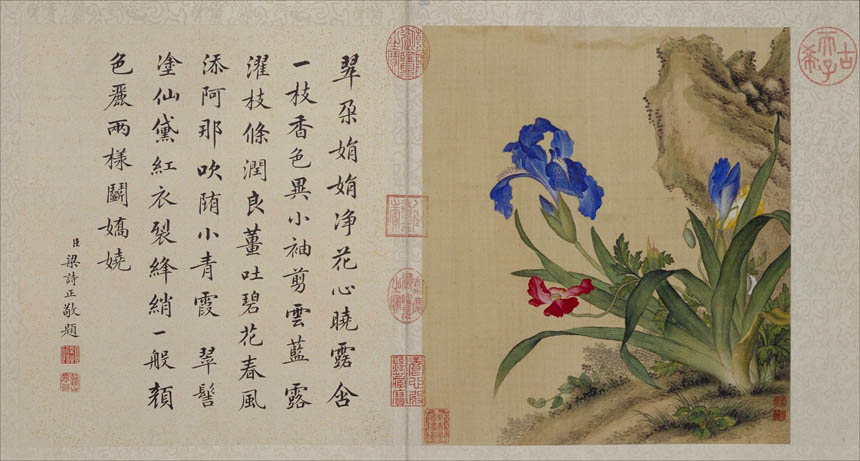 翠朵娟娟净花心曉露含
一枝香色異小袖剪雲藍露
濯枝條潤良薑吐碧花春風
添阿那吹随小青霞 翠髻
塗仙黛紅衣裂絳綃一般顏
色麗兩樣鬭嬌嬈
臣梁詩正敬題
古希天子